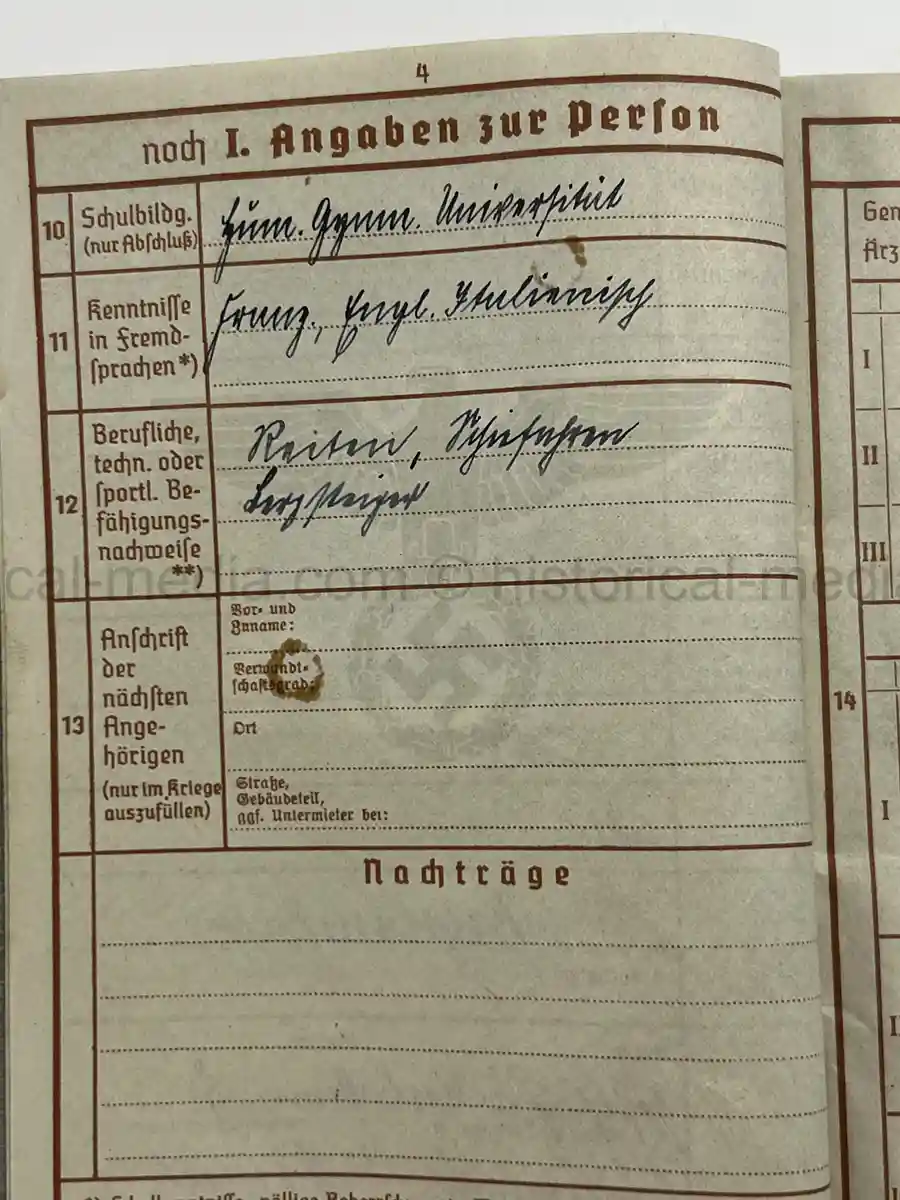 4
noch I. Angaben zur Person
10 Schulbildg. (nur Abschluß)
Hum. Gymn. Universität
11 Kenntnisse in Fremd-
sprachen *)
Franz., Engl. Italienisch
12 Berufliche,
techn. oder
sportl. Be-
fähigungs-
nachweise
**)
Reiten, Skiefahren
Bergsteiger
13 Anschrift
der
nächsten
Ange-
hörigen
(nur im Kriege
auszufüllen)
Vor- und
Zuname:
Verwandt-
schaftsgrad:
Ort
Straße,
Gebäudeteil,
ggf. Untermieter bei:
Nachträge
Gen
Ärz
I
II
III
14
I
historical-media.com © historical-media